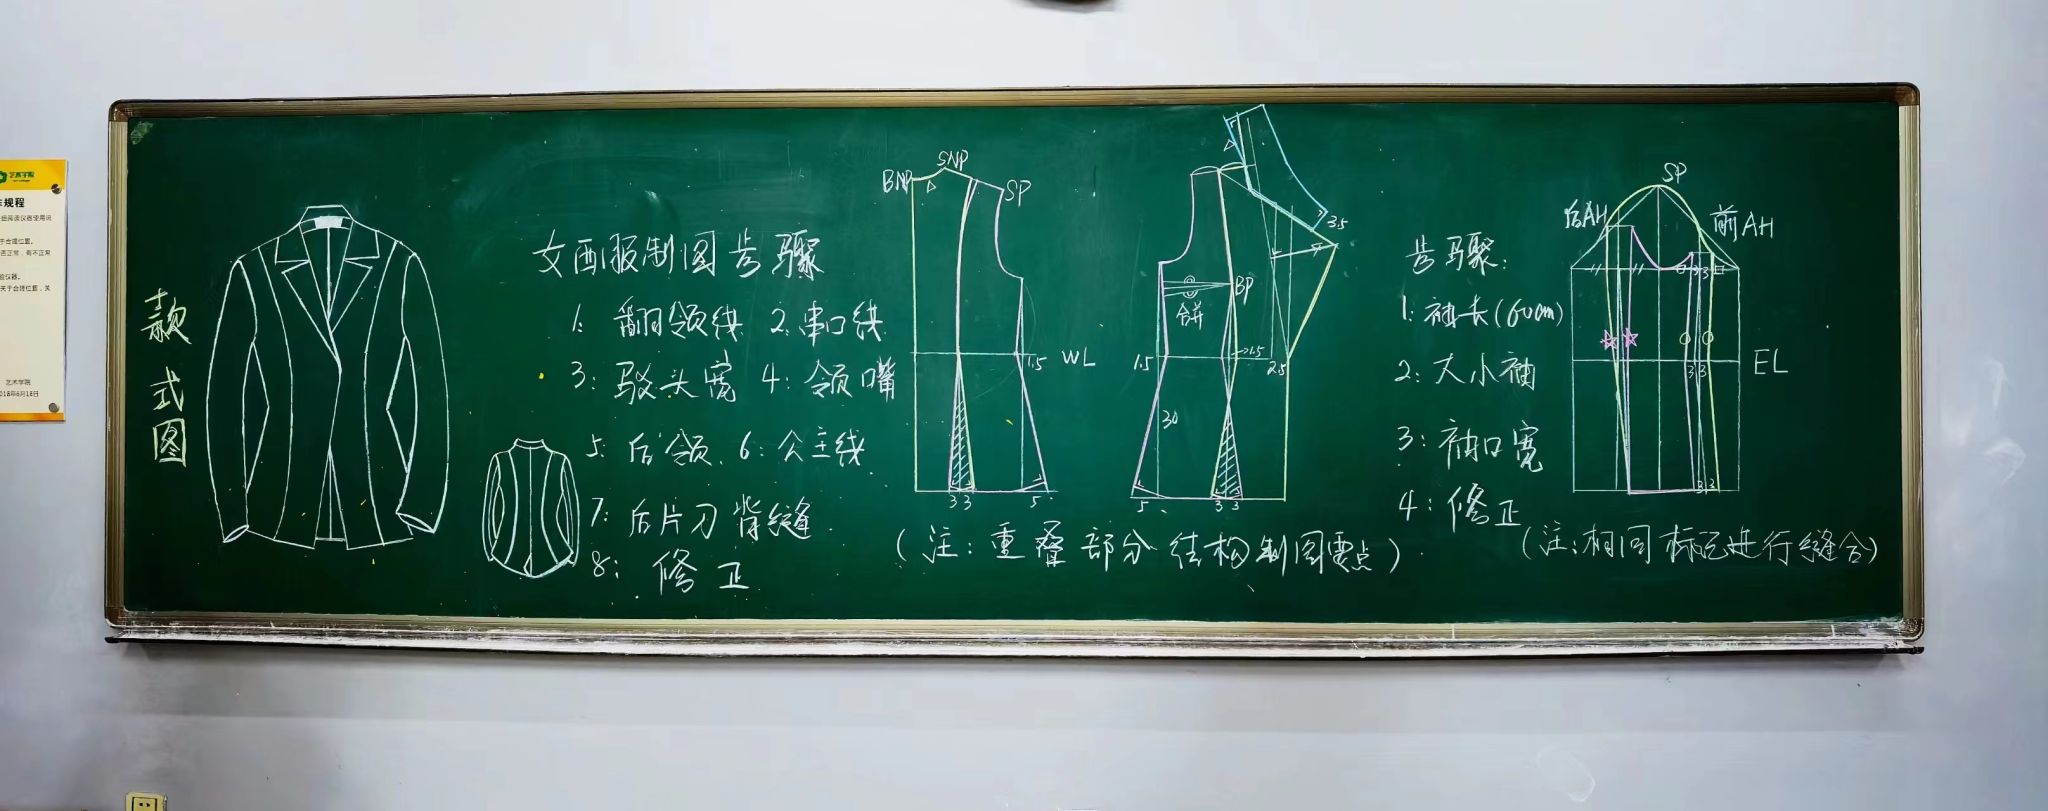 款式图
女西服制图步骤
1: 翻领线 2: 串口线
3: 驳头宽 4: 领嘴
5: 后领 6: 公主线
7: 后片刀背缝
8: 修正
BNP SNP SP
1.5 WL
3 3 5
3.5
BP
合并
1.5 1.5 2.5
30
5 3 3
(注: 重叠部分结构制图要点)
步骤:
1: 袖长(60cm)
2: 大小袖
3: 袖口宽
4: 修正
SP
后AH 前AH
3 3
3 3 EL
3 3
(注: 相同标记进行缝合)
艺术学院
规程
于合理位置。
否正常,有不正常
关于合理位置,关
艺术学院
018年6月18日